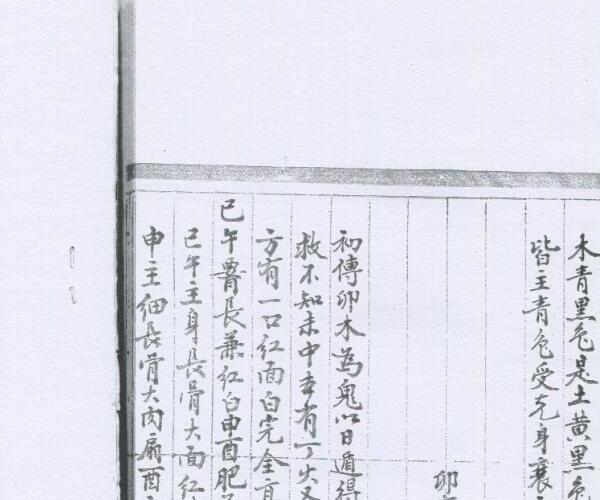 木青黑色是土黃黑色
皆主青色受克身衰
卯
初傳卯木為鬼以日遁得
救不知未中幸有丁火又
方有一口紅面白完全
巳午臀長兼紅白申酉肥
巳午主身長骨大面紅
申主細長骨大肉扁酉